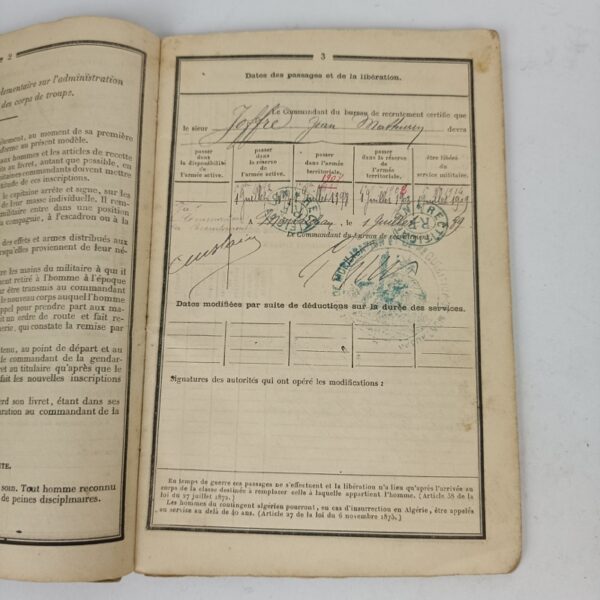 2
dementaire sur l'administration
des corps de troupe.
itement, au moment de sa première
forme au présent modèle.
aux hommes et les articles de recette
ro au livret, autant que possible, en
itaines commandants doivent mettre
titude de ces inscriptions.
le capitaine arrête et signe, sur les
de leur masse individuelle. Il rem-
militaire entre dans une position
a compagnie, à l'escadron ou à la
des effets et armes distribués aux
squ'elles proviennent de leur né-
re les mains du militaire à qui il
ent retiré à l'homme à l'époque
r être transmis au commandant
le nouveau corps auquel l'homme
appel pour prendre part aux ma-
it un ordre de route et fait re-
erie, qui constate la remise par
tenu, au point de départ et au
le commandant de la gendar-
et au titulaire qu'après que le
fait les nouvelles inscriptions
rd son livret, étant dans ses
aration au commandant de la
TE.
SOIN. Tout homme reconnu
de peines disciplinaires.
3
Dates des passages et de la libération.
Le Commandant du bureau de recrutement certifie que
le sieur Joffre Jean Mathurin devra
passer dans la disponibilité de l'armée active.
passer dans la réserve de l'armée active.
passer dans l'armée territoriale.
passer dans la réserve de l'armée territoriale.
être libéré du service militaire.
Le Commandant du bureau de recrutement,
Dates modifiées par suite de déductions sur la durée des services.
Signatures des autorités qui ont opéré les modifications :
En temps de guerre ces passages ne s'effectuent et la libération n'a lieu qu'après l'arrivée au
corps de la classe destinée à remplacer celle à laquelle appartient l'homme. (Article 38 de la
loi du 27 juillet 1872.)
Les hommes du contingent algérien pourront, en cas d'insurrection en Algérie, être appelés
au service au delà de 40 ans. (Article 27 de la loi du 6 novembre 1875.)